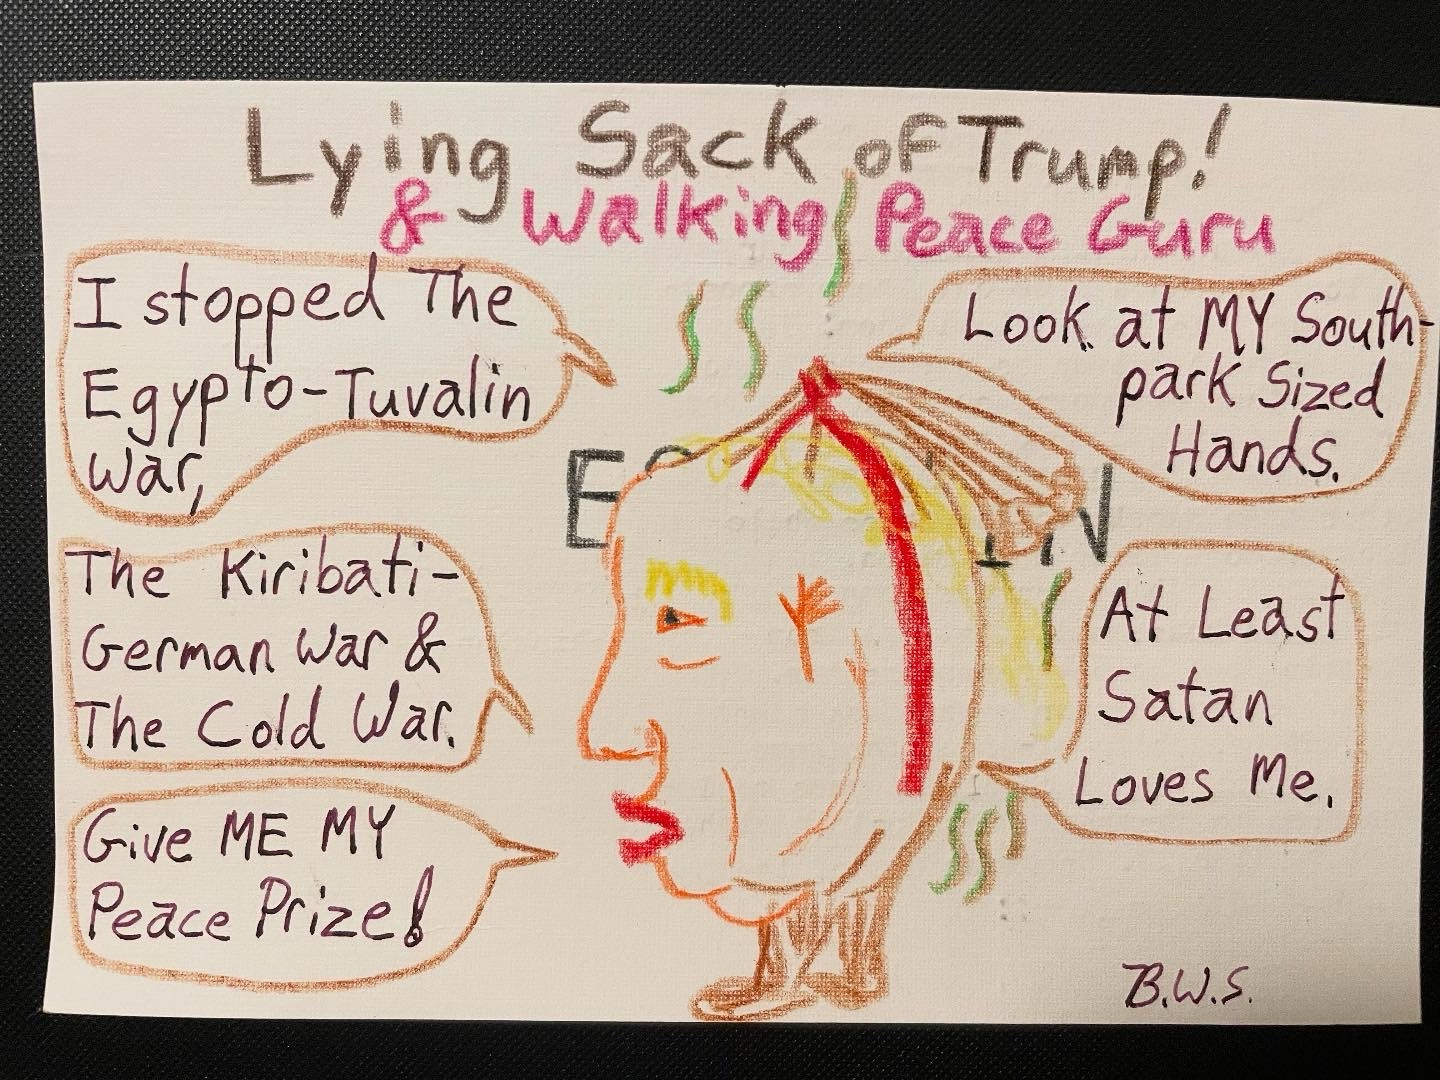 Lying Sack of Trump!
& Walking Peace Guru
I stopped The
Egypto-Tuvalin
War,
Look at MY South-
park Sized
Hands.
The Kiribati-
German War &
The Cold War.
At Least
Satan
Loves Me.
Give ME MY
Peace Prize!
B.W.S.